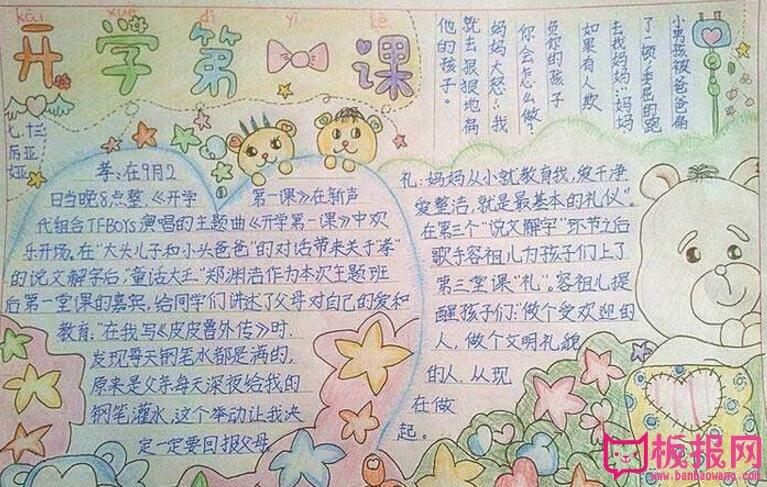 kāi xué dì yī kè
开学第课
小男孩被爸爸扁
了一顿,委屈的跑
去找妈妈:"妈妈
如果有人欺
负你的孩子
你会怎么做?
妈妈大怒:"我
就去狠狠地扁
他的孩子。
七.十三
厉亚
娅
孝:在9月2
日当晚8点整,《开学第一课》在新声
代组合TFBOYS演唱的主题曲《开学第一课》中欢
乐开场。在"大头儿子和小头爸爸"的对话带来关于"孝"
的说文解字后,"童话大王"郑渊洁作为本次主题班
后第一堂课的嘉宾,给同学们讲述了父母对自己的爱和
教育:"在我写《皮皮鲁外传》时,
发现每天钢笔水都是满的,
原来是父亲每天深夜给我的
钢笔灌水,这个举动让我决
定一定要回报父母。
礼:妈妈从小就教育我,爱干净
爱整洁,就是最基本的礼仪"。
在第三个"说文解字"环节之后
歌手容祖儿为孩子们上了
第三堂课"礼"。容祖儿提
醒孩子们:"做个受欢迎的
人,做个文明礼貌
的人,从现
在做
起。
板报网
www.banbaowang.com